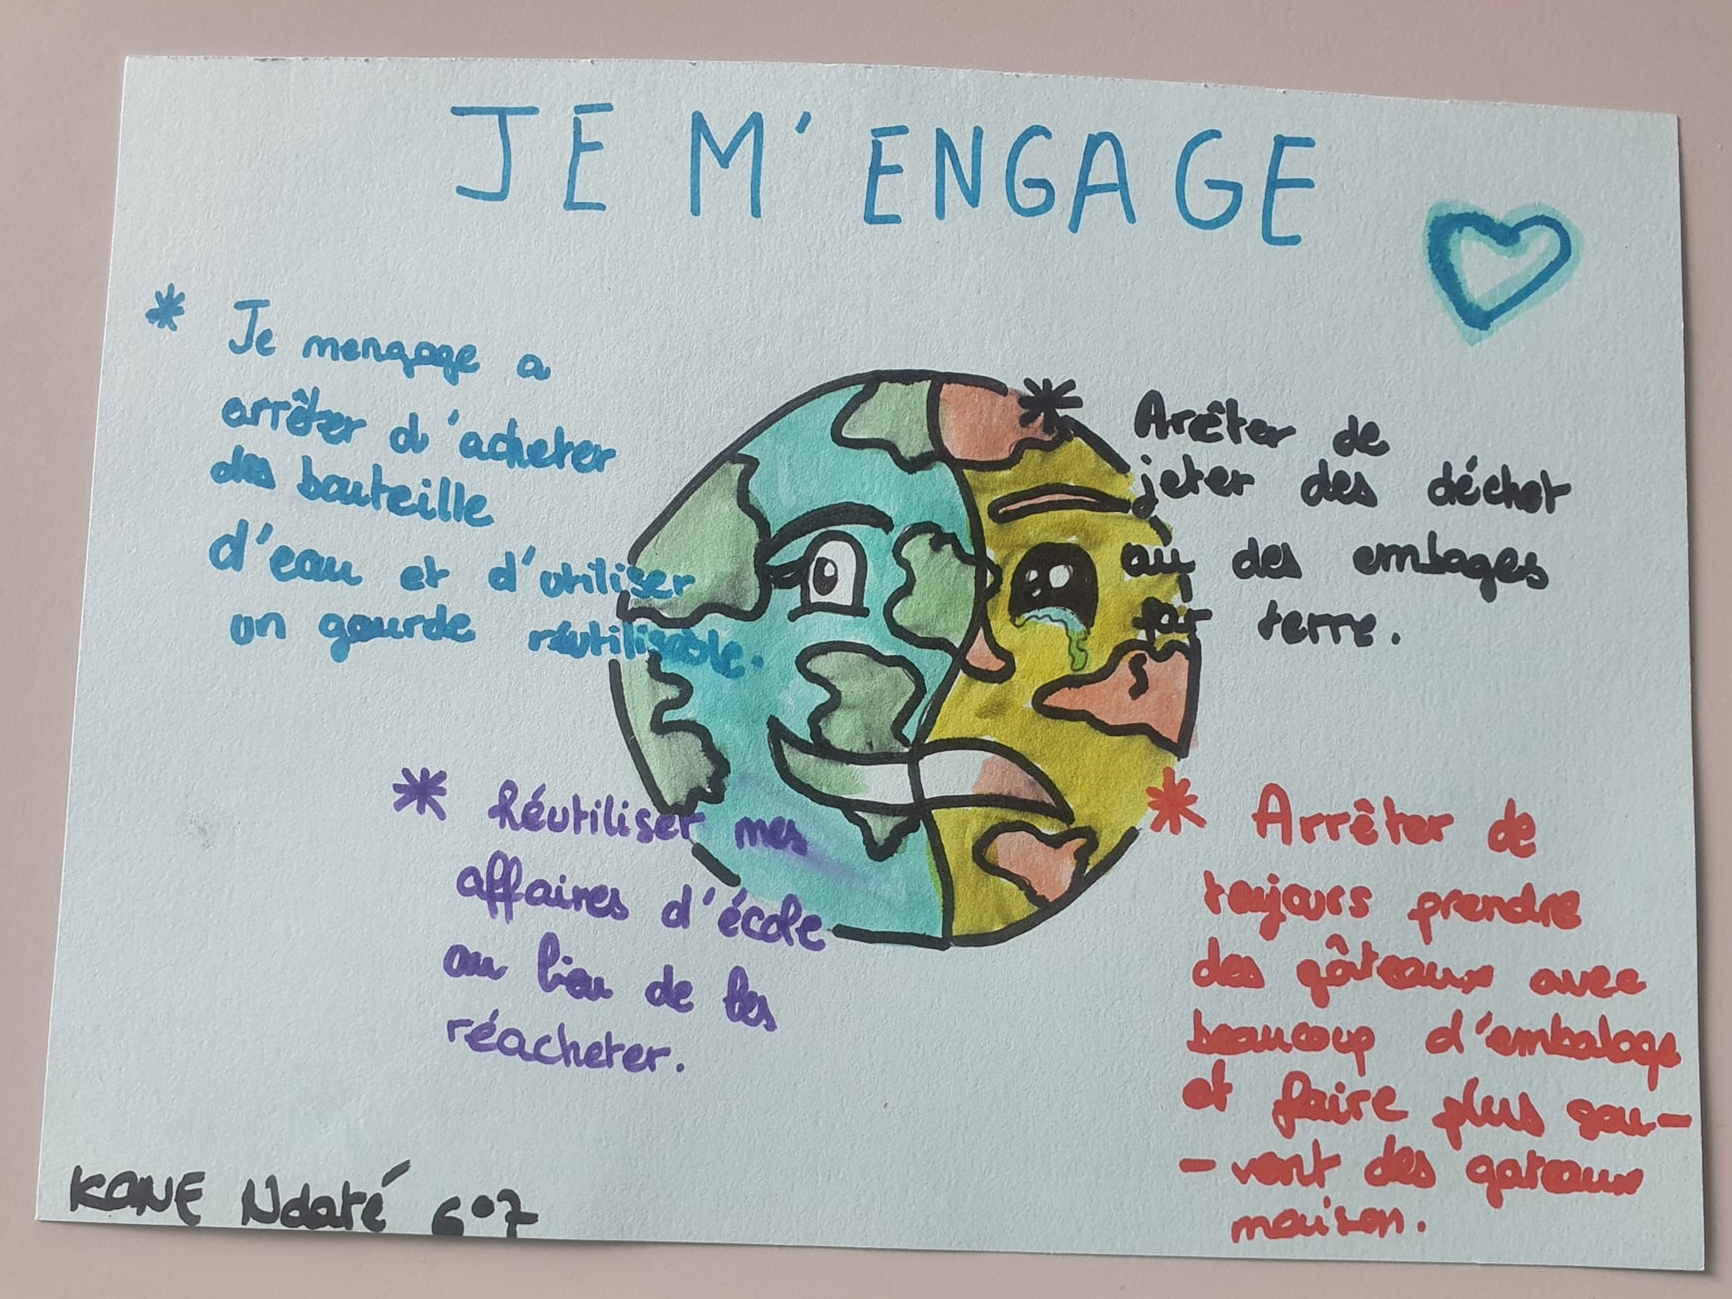 JE M'ENGAGE
* Je mengage a
arrêter d'acheter
des bouteille
d'eau et d'utiliser
un gourde réutilisable.
* Arêter de
jeter des déchet
ou des embages
par terre.
* Réutiliser mes
affaires d'école
au lieu de les
réacheter.
* Arrêter de
toujours prendre
des gâteaux avec
beaucoup d'embalage
et faire plus sou-
-vent des gateaux
maison.
KANE Ndaté 6°7